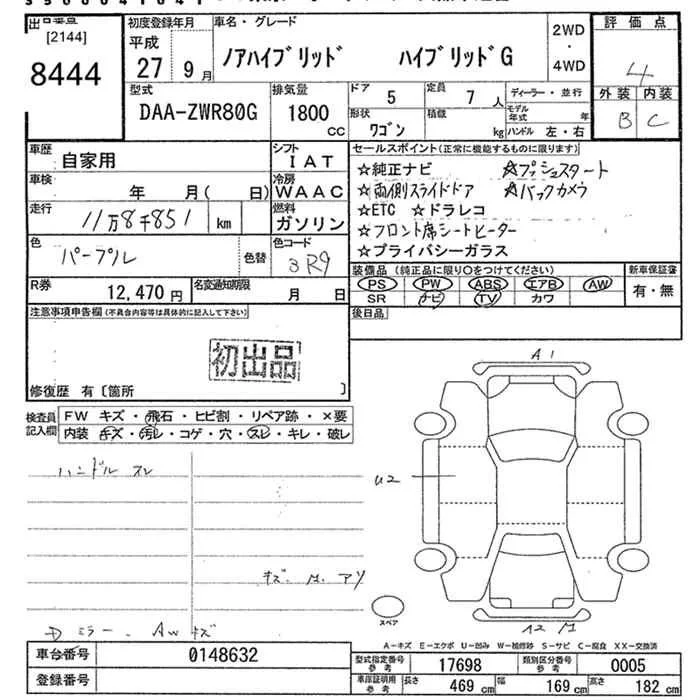 出品番号
[2144]
8444
初度登録年月
平成
27 9月
車名・グレード
ノアハイブリッド ハイブリッドG
2WD
・
4WD
評価点
4
外装 内装
B C
型式
DAA-ZWR80G
排気量
1800
CC
ドア 5
定員 7人
形状 ワゴン
積載 kg
ディーラー・並行
モデル年式 年
ハンドル 左・右
車歴 自家用
シフト IAT
車検 年 月( 日)
冷房 WAAC
走行 11万8千851 km
燃料 ガソリン
色 パープル
色替
色コード 3R9
R券 12,470円
名変通知期限 月 日
セールスポイント(正常に機能するものに限ります)
☆純正ナビ ☆プッシュスタート
☆両側スライドドア ☆バックカメラ
☆ETC ☆ドラレコ
☆フロント席シートヒーター
☆プライバシーガラス
装備品(純正品に限り〇をつけてください)
PS PW ABS エアB AW
SR ナビ TV カワ
新車保証書
有・無
後日品
注意事項申告欄(不具合内容等は具体的に記入して下さい)
初出品
修復歴 有〔箇所 〕
検査員記入欄
FW キズ・飛石・ヒビ割・リペア跡・×要
内装・キズ・汚レ・コゲ・穴・スレ・キレ・破レ
ハンドル スレ
キズ. M. アリ
ミラー. AW キズ
A1
U2
A2 M
スペア
A－キズ E－エクボ U－凹み W－補修跡 S－サビ C－腐食 XX－交換済
車台番号 0148632
登録番号
型式指定番号参考 17698
類別区分番号参考 0005
車庫証明用参考 長さ 469cm 幅 169cm 高さ 182cm